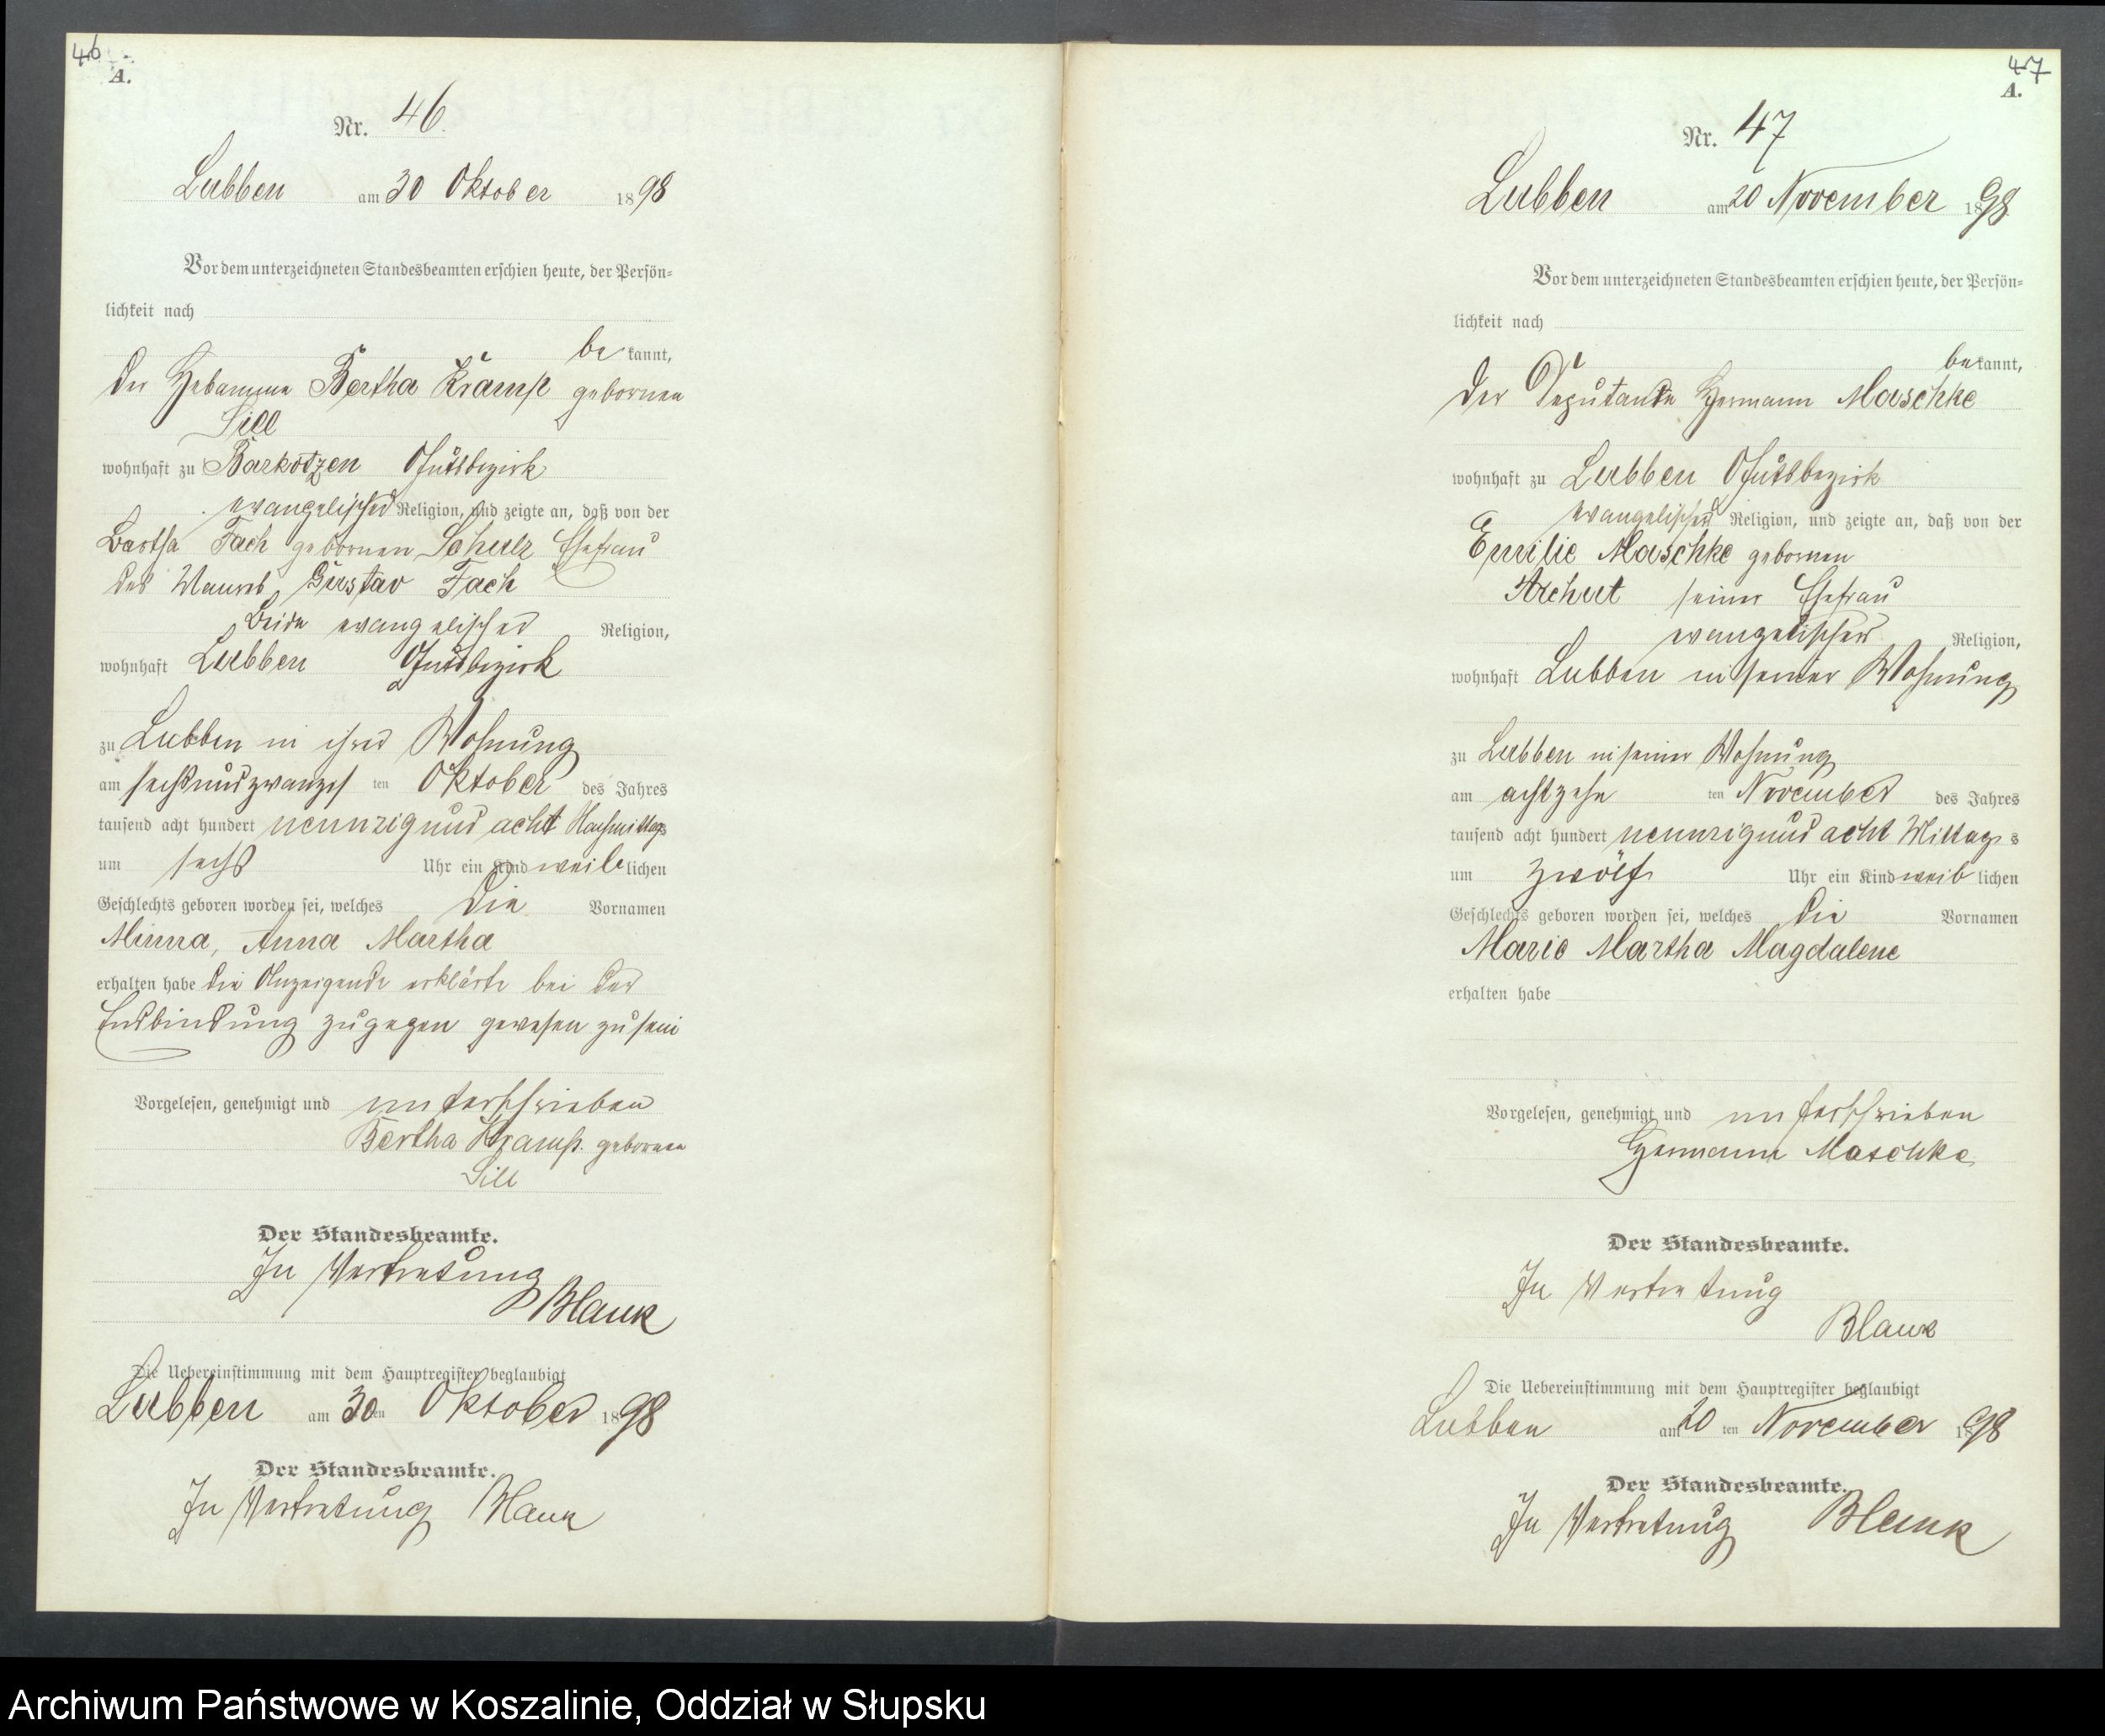 46
A.
Nr. 46.
Lubben am 30 Oktober 1898
Vor dem unterzeichneten Standesbeamten erschien heute, der Persön=
lichkeit nach
be kannt,
der Hebamme Bertha Kramp gebornen
Sill
wohnhaft zu Barkotzen Gutsbezirk
evangelischer Religion, und zeigte an, daß von der
Bertha Fach gebornen Schulz Ehefrau
des Gustav Fach
Beide evangelischer Religion,
wohnhaft Lubben Gutsbezirk
zu Lubben in ihrer Wohnung
am sechsundzwanzigs ten Oktober des Jahres
tausend acht hundert neunzig und acht Nachmittags
um sechs Uhr ein Kind weib lichen
Geschlechts geboren worden sei, welches die Vornamen
Minna, Anna Martha
erhalten habe die Anzeigende erklärte bei der
Entbindung zugegen gewesen zu sein
Vorgelesen, genehmigt und unterschrieben
Bertha Kramp. gebornen
Sill
Der Standesbeamte.
In Vertretung
Blank
Die Uebereinstimmung mit dem Hauptregister beglaubigt
Lubben am 30 ten Oktober 1898
Der Standesbeamte.
In Vertretung Blank
47
A.
Nr. 47
Lubben am 20 November 1898
Vor dem unterzeichneten Standesbeamten erschien heute, der Persön=
lichkeit nach
be kannt,
der Deputante Hermann Maschke
wohnhaft zu Lubben Gutsbezirk
evangelischer Religion, und zeigte an, daß von der
Emilie Maschke gebornen
Archut seiner Ehefrau
evangelischer Religion,
wohnhaft Lubben in seiner Wohnung
zu Lubben in seiner Wohnung
am achtzehn ten November des Jahres
tausend acht hundert neunzig und acht Mittag s
um zwölf Uhr ein Kind weib lichen
Geschlechts geboren worden sei, welches die Vornamen
Marie Martha Magdalene
erhalten habe
Vorgelesen, genehmigt und unterschrieben
Hermann Maschke
Der Standesbeamte.
In Vertretung
Blank
Die Uebereinstimmung mit dem Hauptregister beglaubigt
Lubben am 20 ten November 1898
Der Standesbeamte.
In Vertretung Blank
Archiwum Państwowe w Koszalinie, Oddział w Słupsku